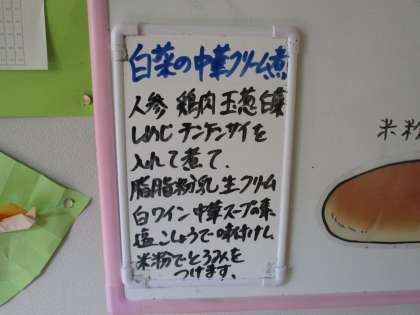 白菜の中華クリーム煮
人参 鶏肉 玉葱 白菜
しめじ チンゲンサイを
入れて煮て、
脂脂粉乳 生クリーム
白ワイン 中華スープの素
塩こしょうで味付けし
米粉でとろみを
つけます。
米粉